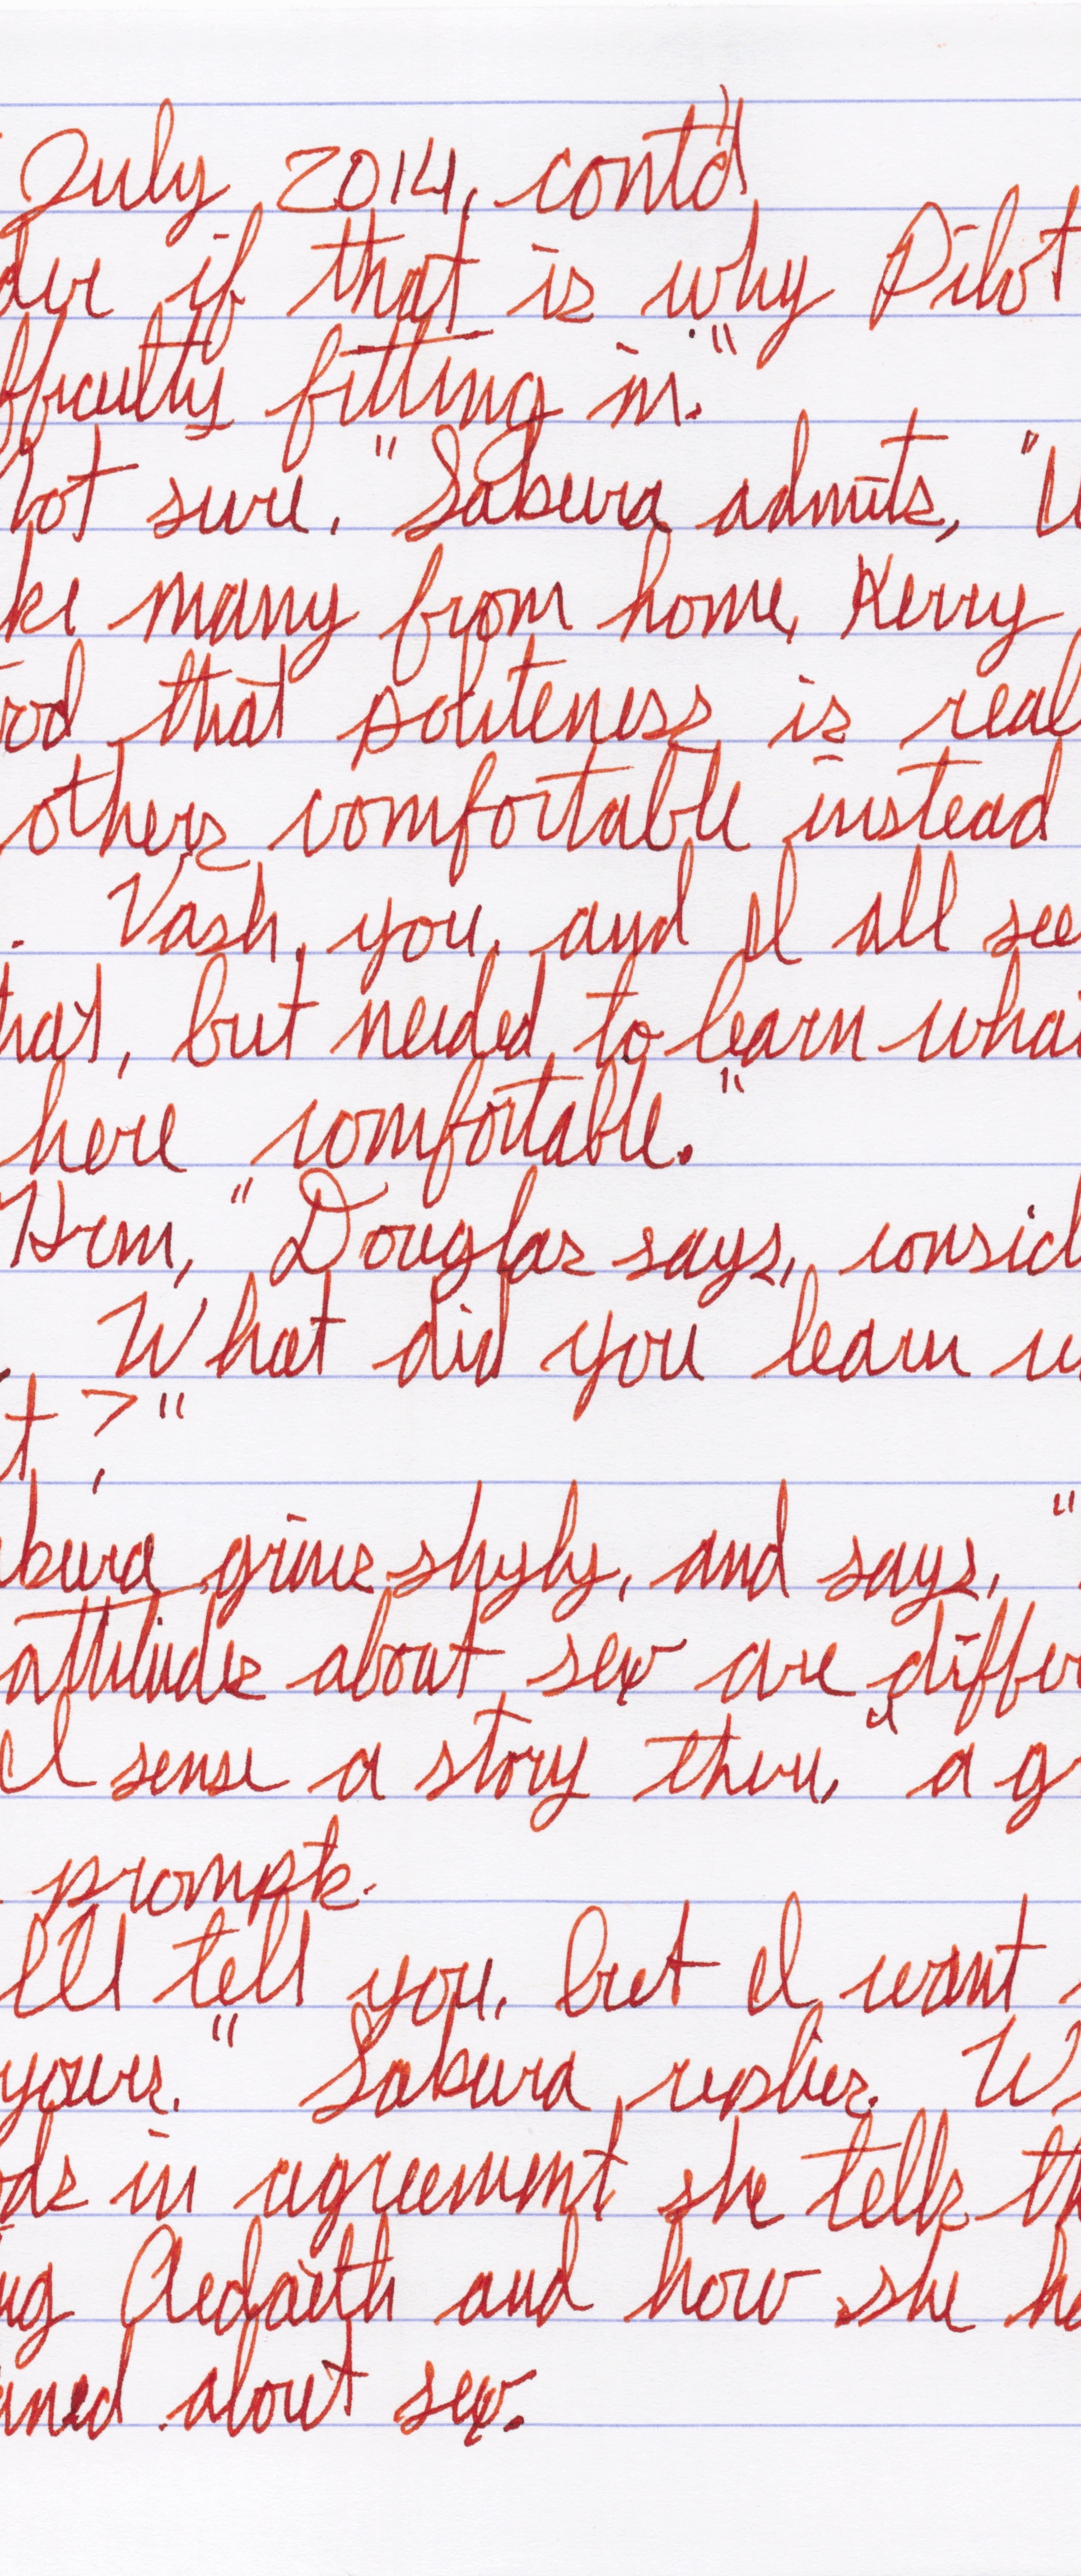 July 2014, cont'd
der if that is why Pilot
fficulty fitting in."
ot sure," Sakura admits, "U
ke many from home, Kerry
ood that politeness is real
others comfortable instead
. Vash, you, and I all see
hat, but needed to learn what
here comfortable."
Hrm," Douglas says, consid
. What did you learn w
t?"
kura grins shyly, and says, "
attitudes about sex are differ
I sense a story there," a g
prompts.
I'll tell you, but I want
yours." Sakura replies. W
ods in agreement, she tells th
ng Aedaith and how she ha
rned about sex.